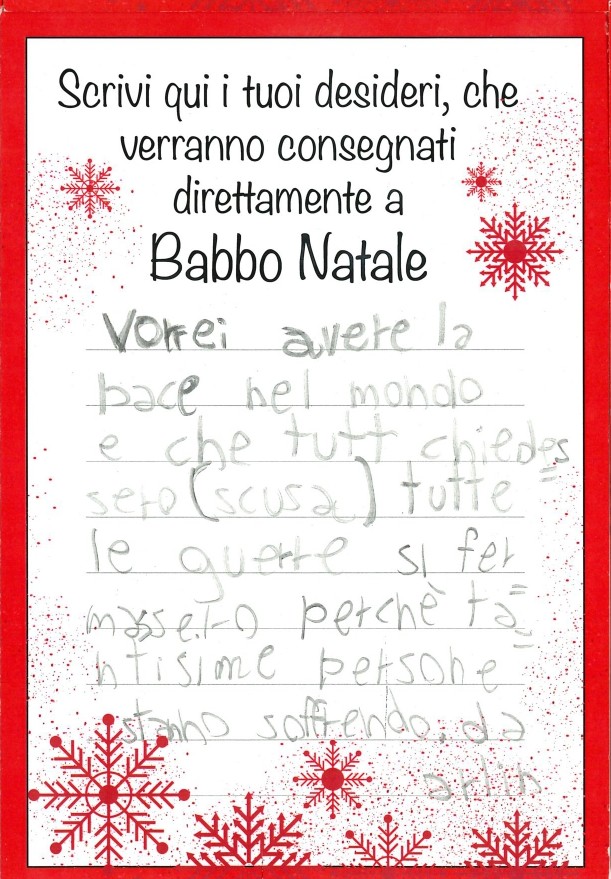 Scrivi qui i tuoi desideri, che
verranno consegnati
direttamente a
Babbo Natale
Vorrei avere la
pace nel mondo
e che tutt chiedes=
sero (scusa) tutte
le guerre si fer
massero perchè ta=
ntisime persone
stanno soffrendo. da
arlin